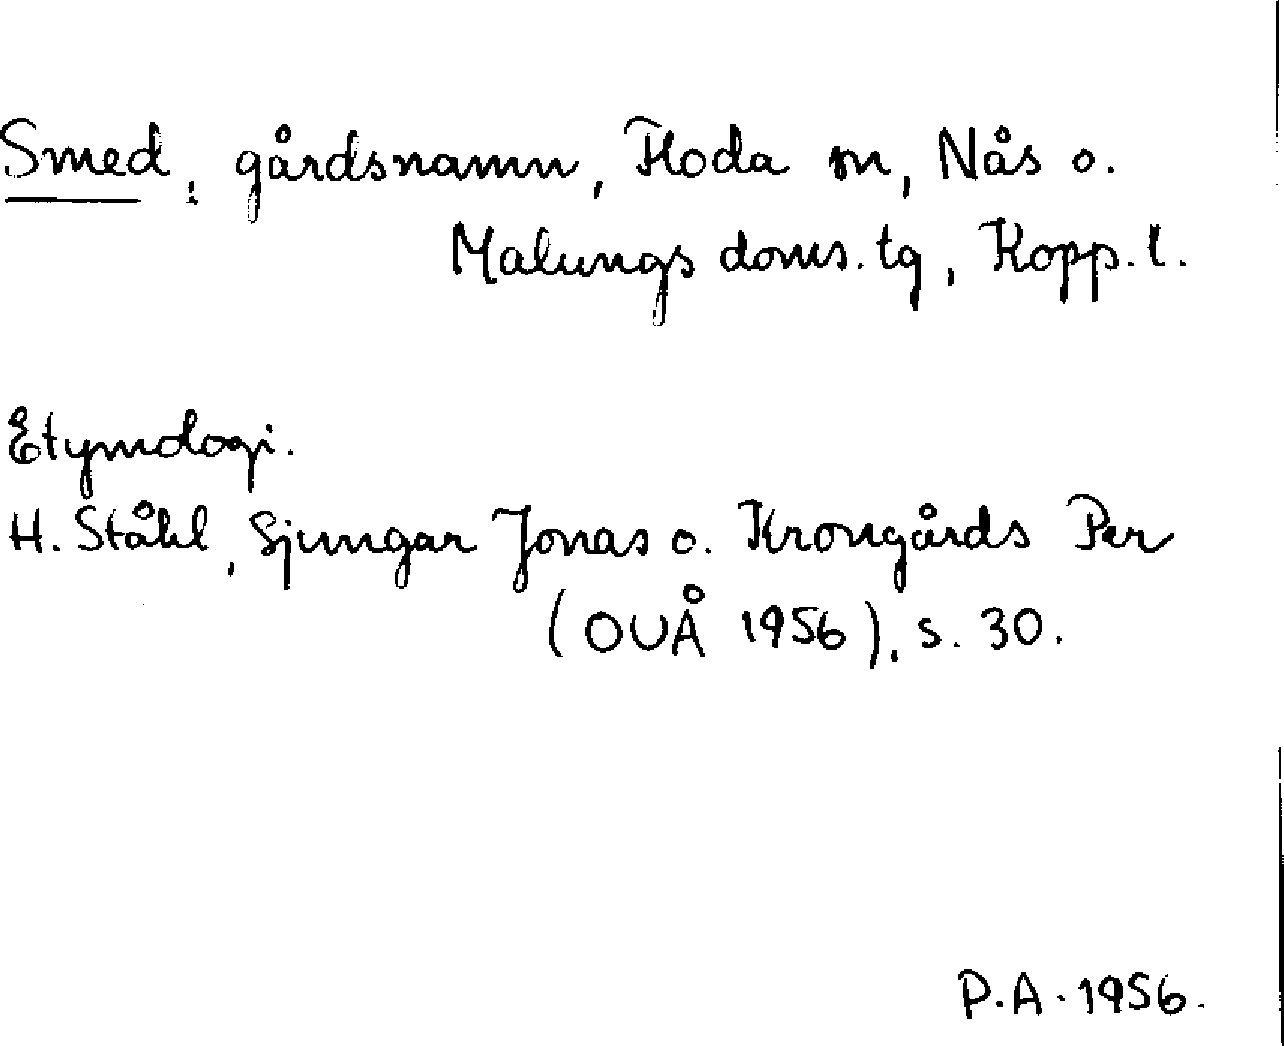 Smed, gårdsnamn, Floda sn, Nås o.
Malungs doms. tg, Kopp. l.
Etymologi.
H. Ståhl, Sjungar Jonas o. Krongårds Per
(OUÅ 1956), s. 30.
P.A. 1956.